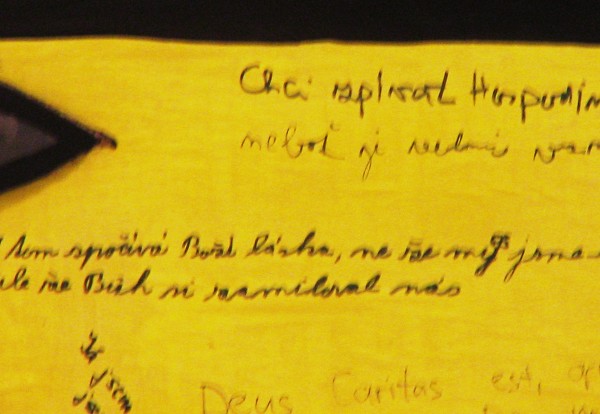 Chci zpívat Hospodin
neboť je velmi
tom spočívá Boží láska, ne že my jsme
ale že Bůh si zamiloval nás
Já jsem
Deus Caritas est,